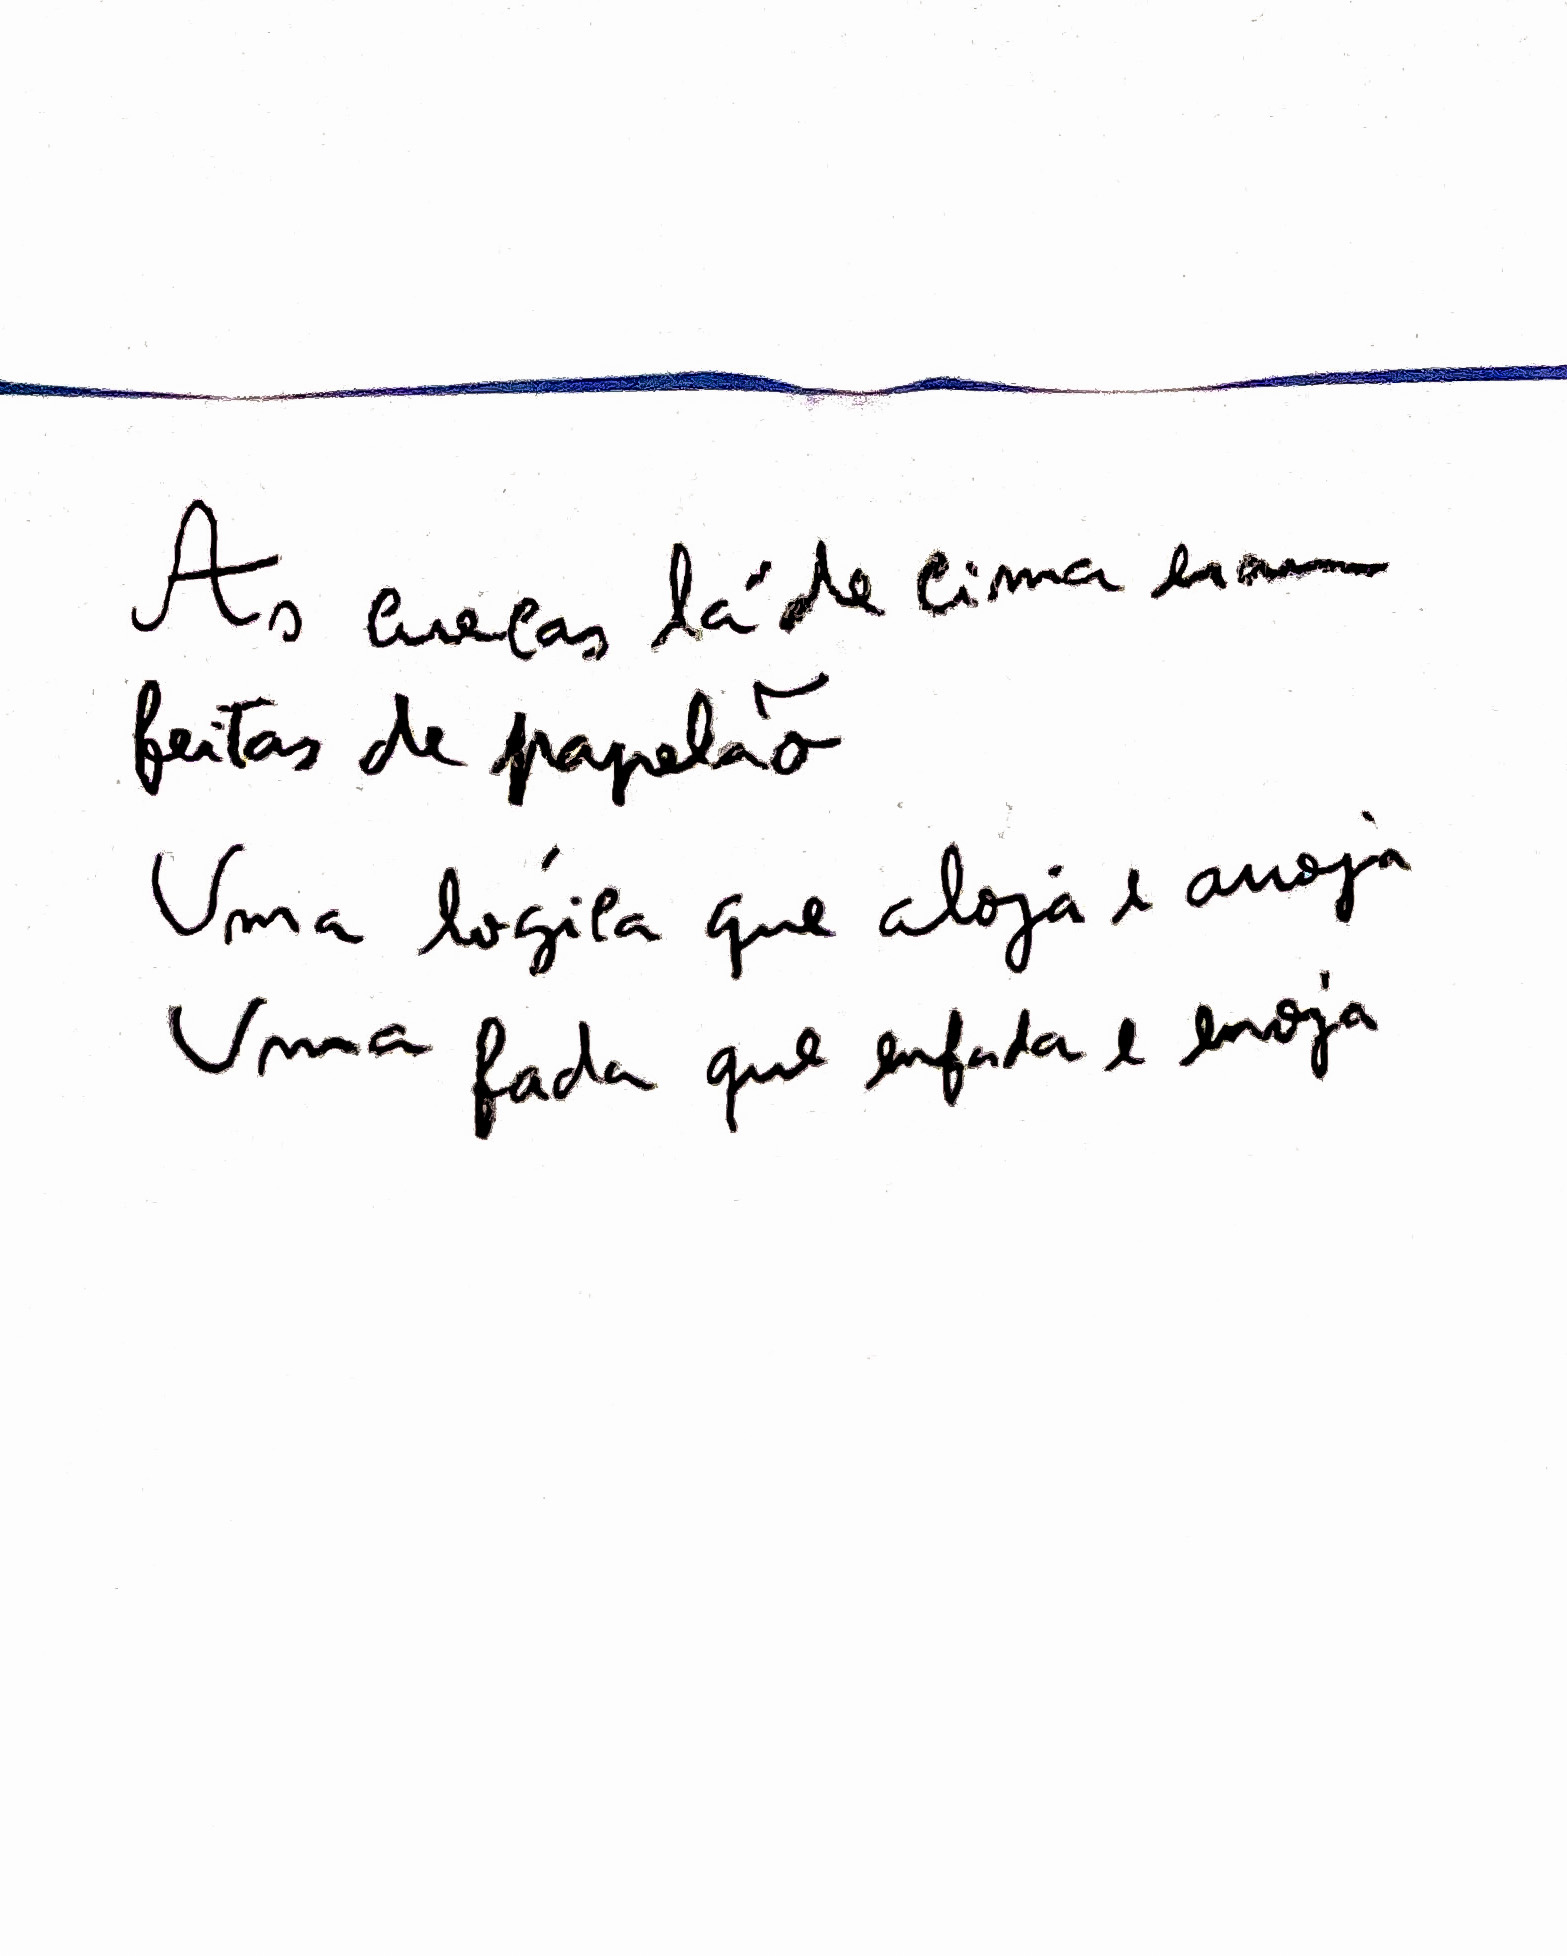 As cuecas lá de cima eram
feitas de papelão
Uma lógica que aloja e anoja
Uma fada que enfada e enoja